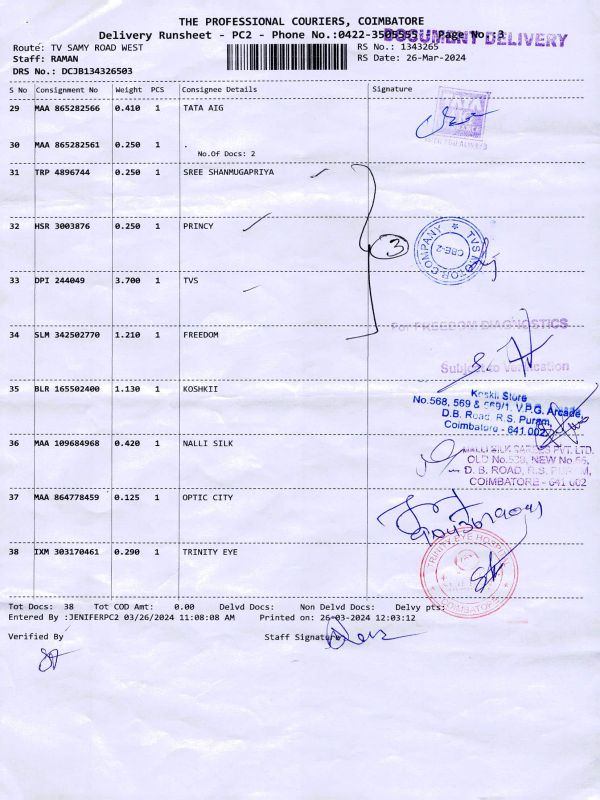 THE PROFESSIONAL COURIERS, COIMBATORE
Delivery Runsheet - PC2 - Phone No.:0422-3505555 Page No.:3
DOCUMENT DELIVERY
Route: TV SAMY ROAD WEST
RS No.: 1343265
Staff: RAMAN
RS Date: 26-Mar-2024
DRS No.: DCJB134326503
S No Consignment No Weight PCS Consignee Details Signature
29 MAA 865282566 0.410 1 TATA AIG
TATA
WITH YOU ALWAYS
30 MAA 865282561 0.250 1 .
No.Of Docs: 2
31 TRP 4896744 0.250 1 SREE SHANMUGAPRIYA
32 HSR 3003876 0.250 1 PRINCY
3
TVS MOTOR COMPANY
CBE-2
33 DPI 244049 3.700 1 TVS
34 SLM 342502770 1.210 1 FREEDOM
For FREEDOM DIAGNOSTICS
Subject to Verification
35 BLR 165502400 1.130 1 KOSHKII
Koskii Store
No.568, 569 & 569/1, V.P.G. Arcade,
D.B. Road, R.S. Puram,
Coimbatore - 641 002.
36 MAA 109684968 0.420 1 NALLI SILK
NALLI SILK SAREES PVT. LTD.
OLD No.539, NEW No.55,
D. B. ROAD, R.S. PURAM,
COIMBATORE - 641 002
37 MAA 864778459 0.125 1 OPTIC CITY
38 IXM 303170461 0.290 1 TRINITY EYE
TRINITY EYE HOSPITAL
COIMBATORE
Tot Docs: 38 Tot COD Amt: 0.00 Delvd Docs: Non Delvd Docs: Delvy pts:
Entered By :JENIFERPC2 03/26/2024 11:08:08 AM Printed on: 26-03-2024 12:03:12
Verified By
Staff Signature